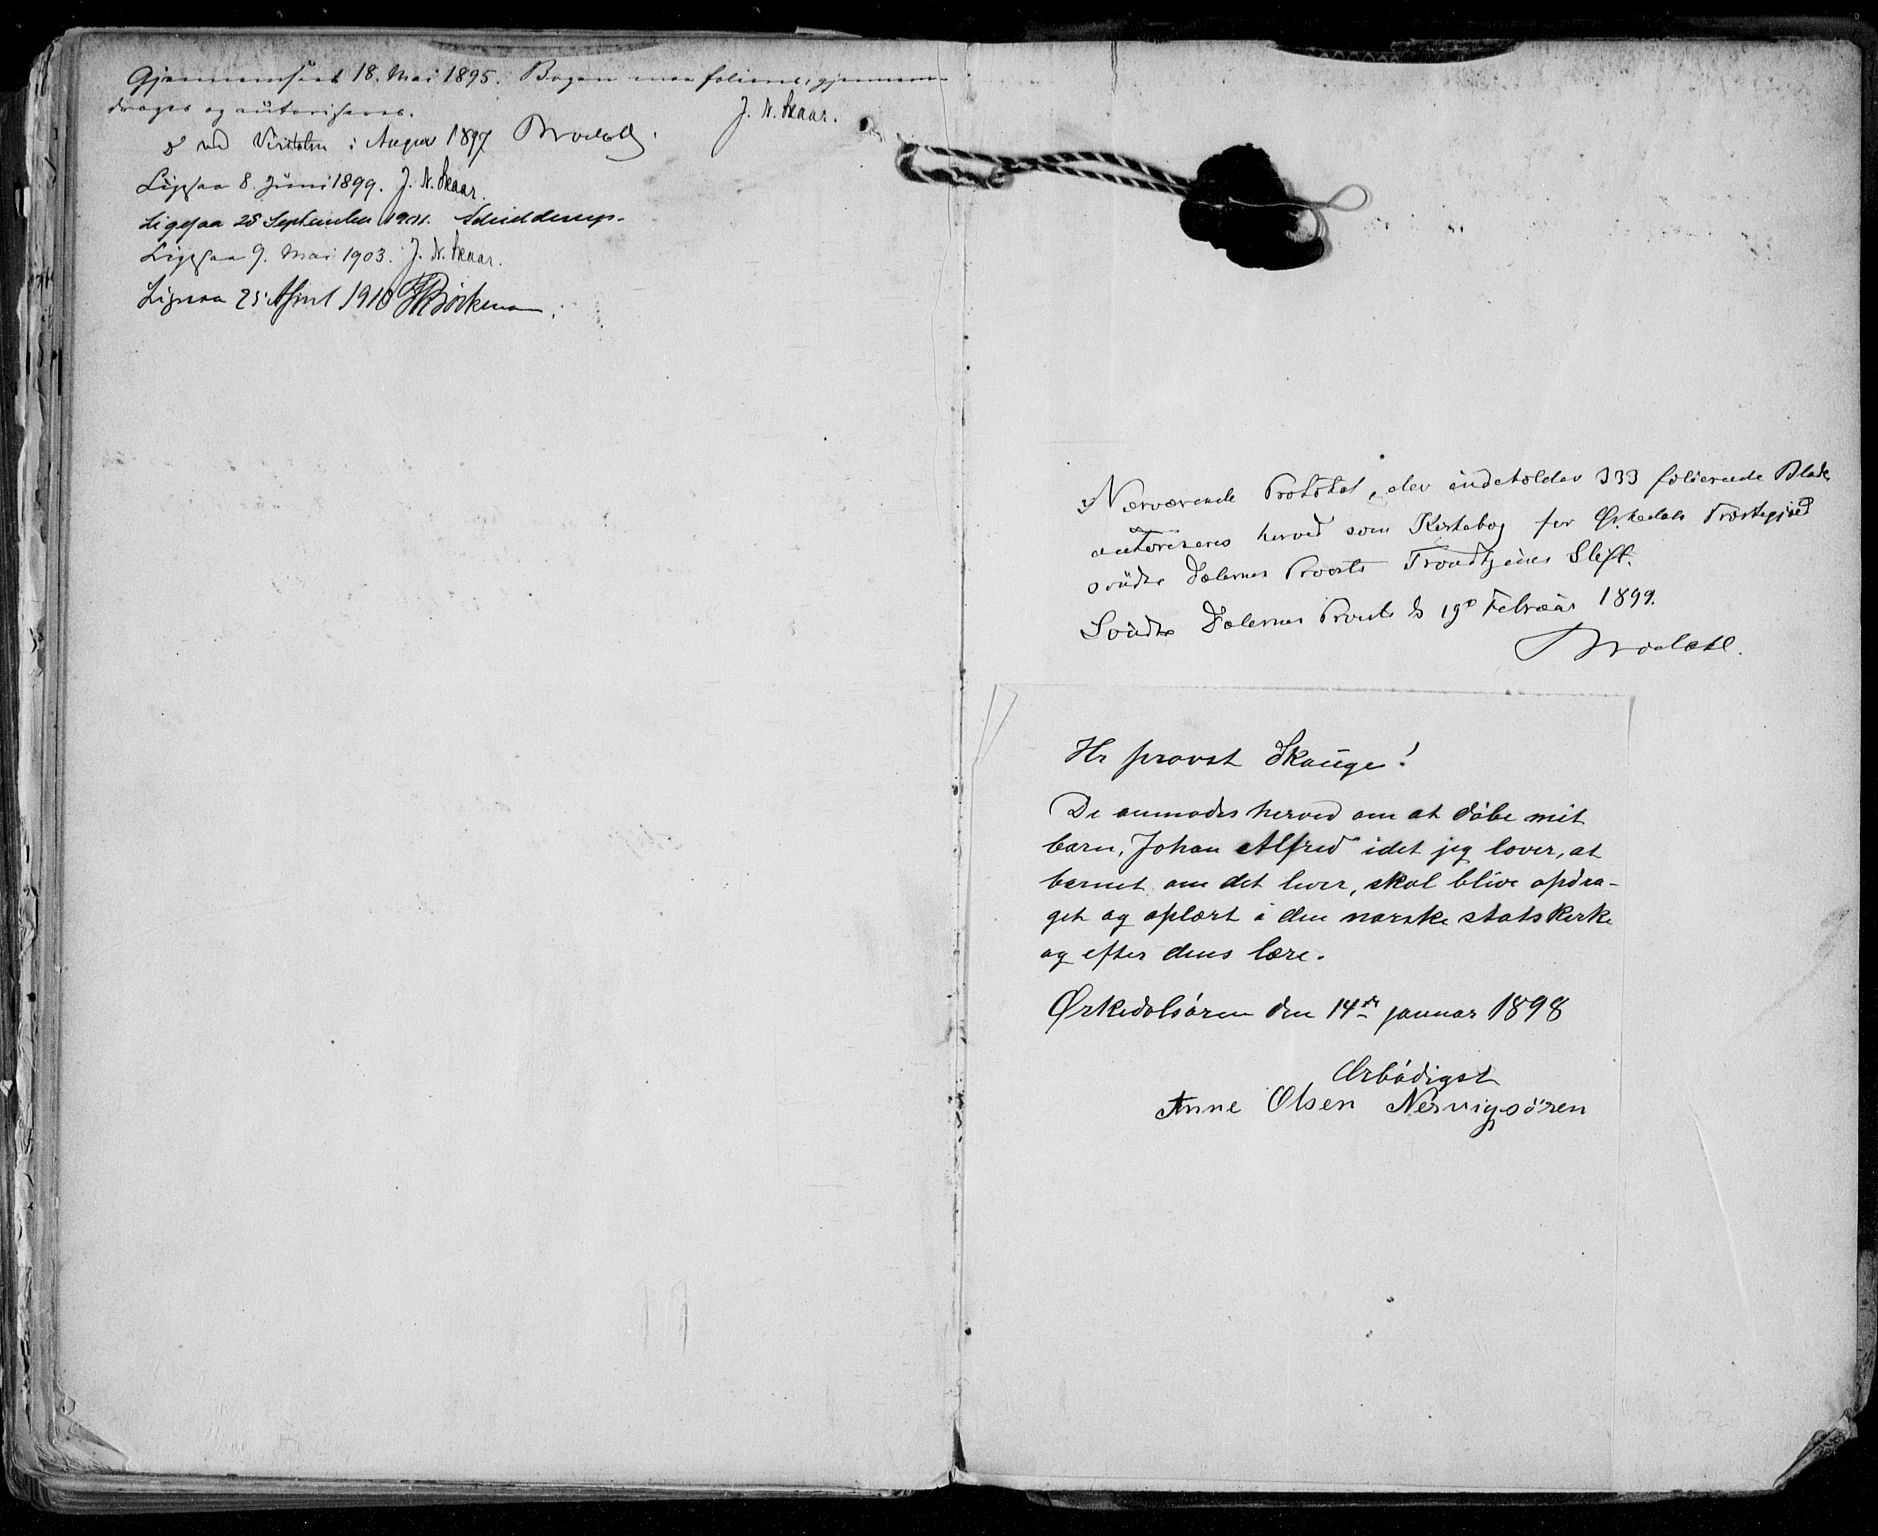 Gjennemseet 18. Mai 1895. Bogen maa folieres, gjennem-
drages og autoriseres.
J. N. Skaar.
ved Visitatsen i August 1897 Brodahl.
Ligesaa 8. Juni 1899. J. N. Skaar.
Ligesaa 28 September 1901. Schjelderup.
Ligesaa 9. Mai 1903. J. N. Skaar.
Ligesaa 25 April 1910 Böckman.
Nærværende Protokol, der indeholder 333 folierede Blade
autoriseres herved som Kirkebog for Ørkedals Præstegjæld
söndre Dalernes Provsti Trondhjems Stift.
Söndre Dalernes Provsti d. 19de Februar 1899.
Brodahl.
Hr provst Skauge!
De anmodes herved om at döbe mit
barn, Johan Alfred idet jeg lover, at
barnet om det lever, skal blive opdra-
get og oplært i den norske statskirke
og efter dens lære.
Ørkedalsören den 14de januar 1898
Ærbödigst
Anne Olsen Nervigsören